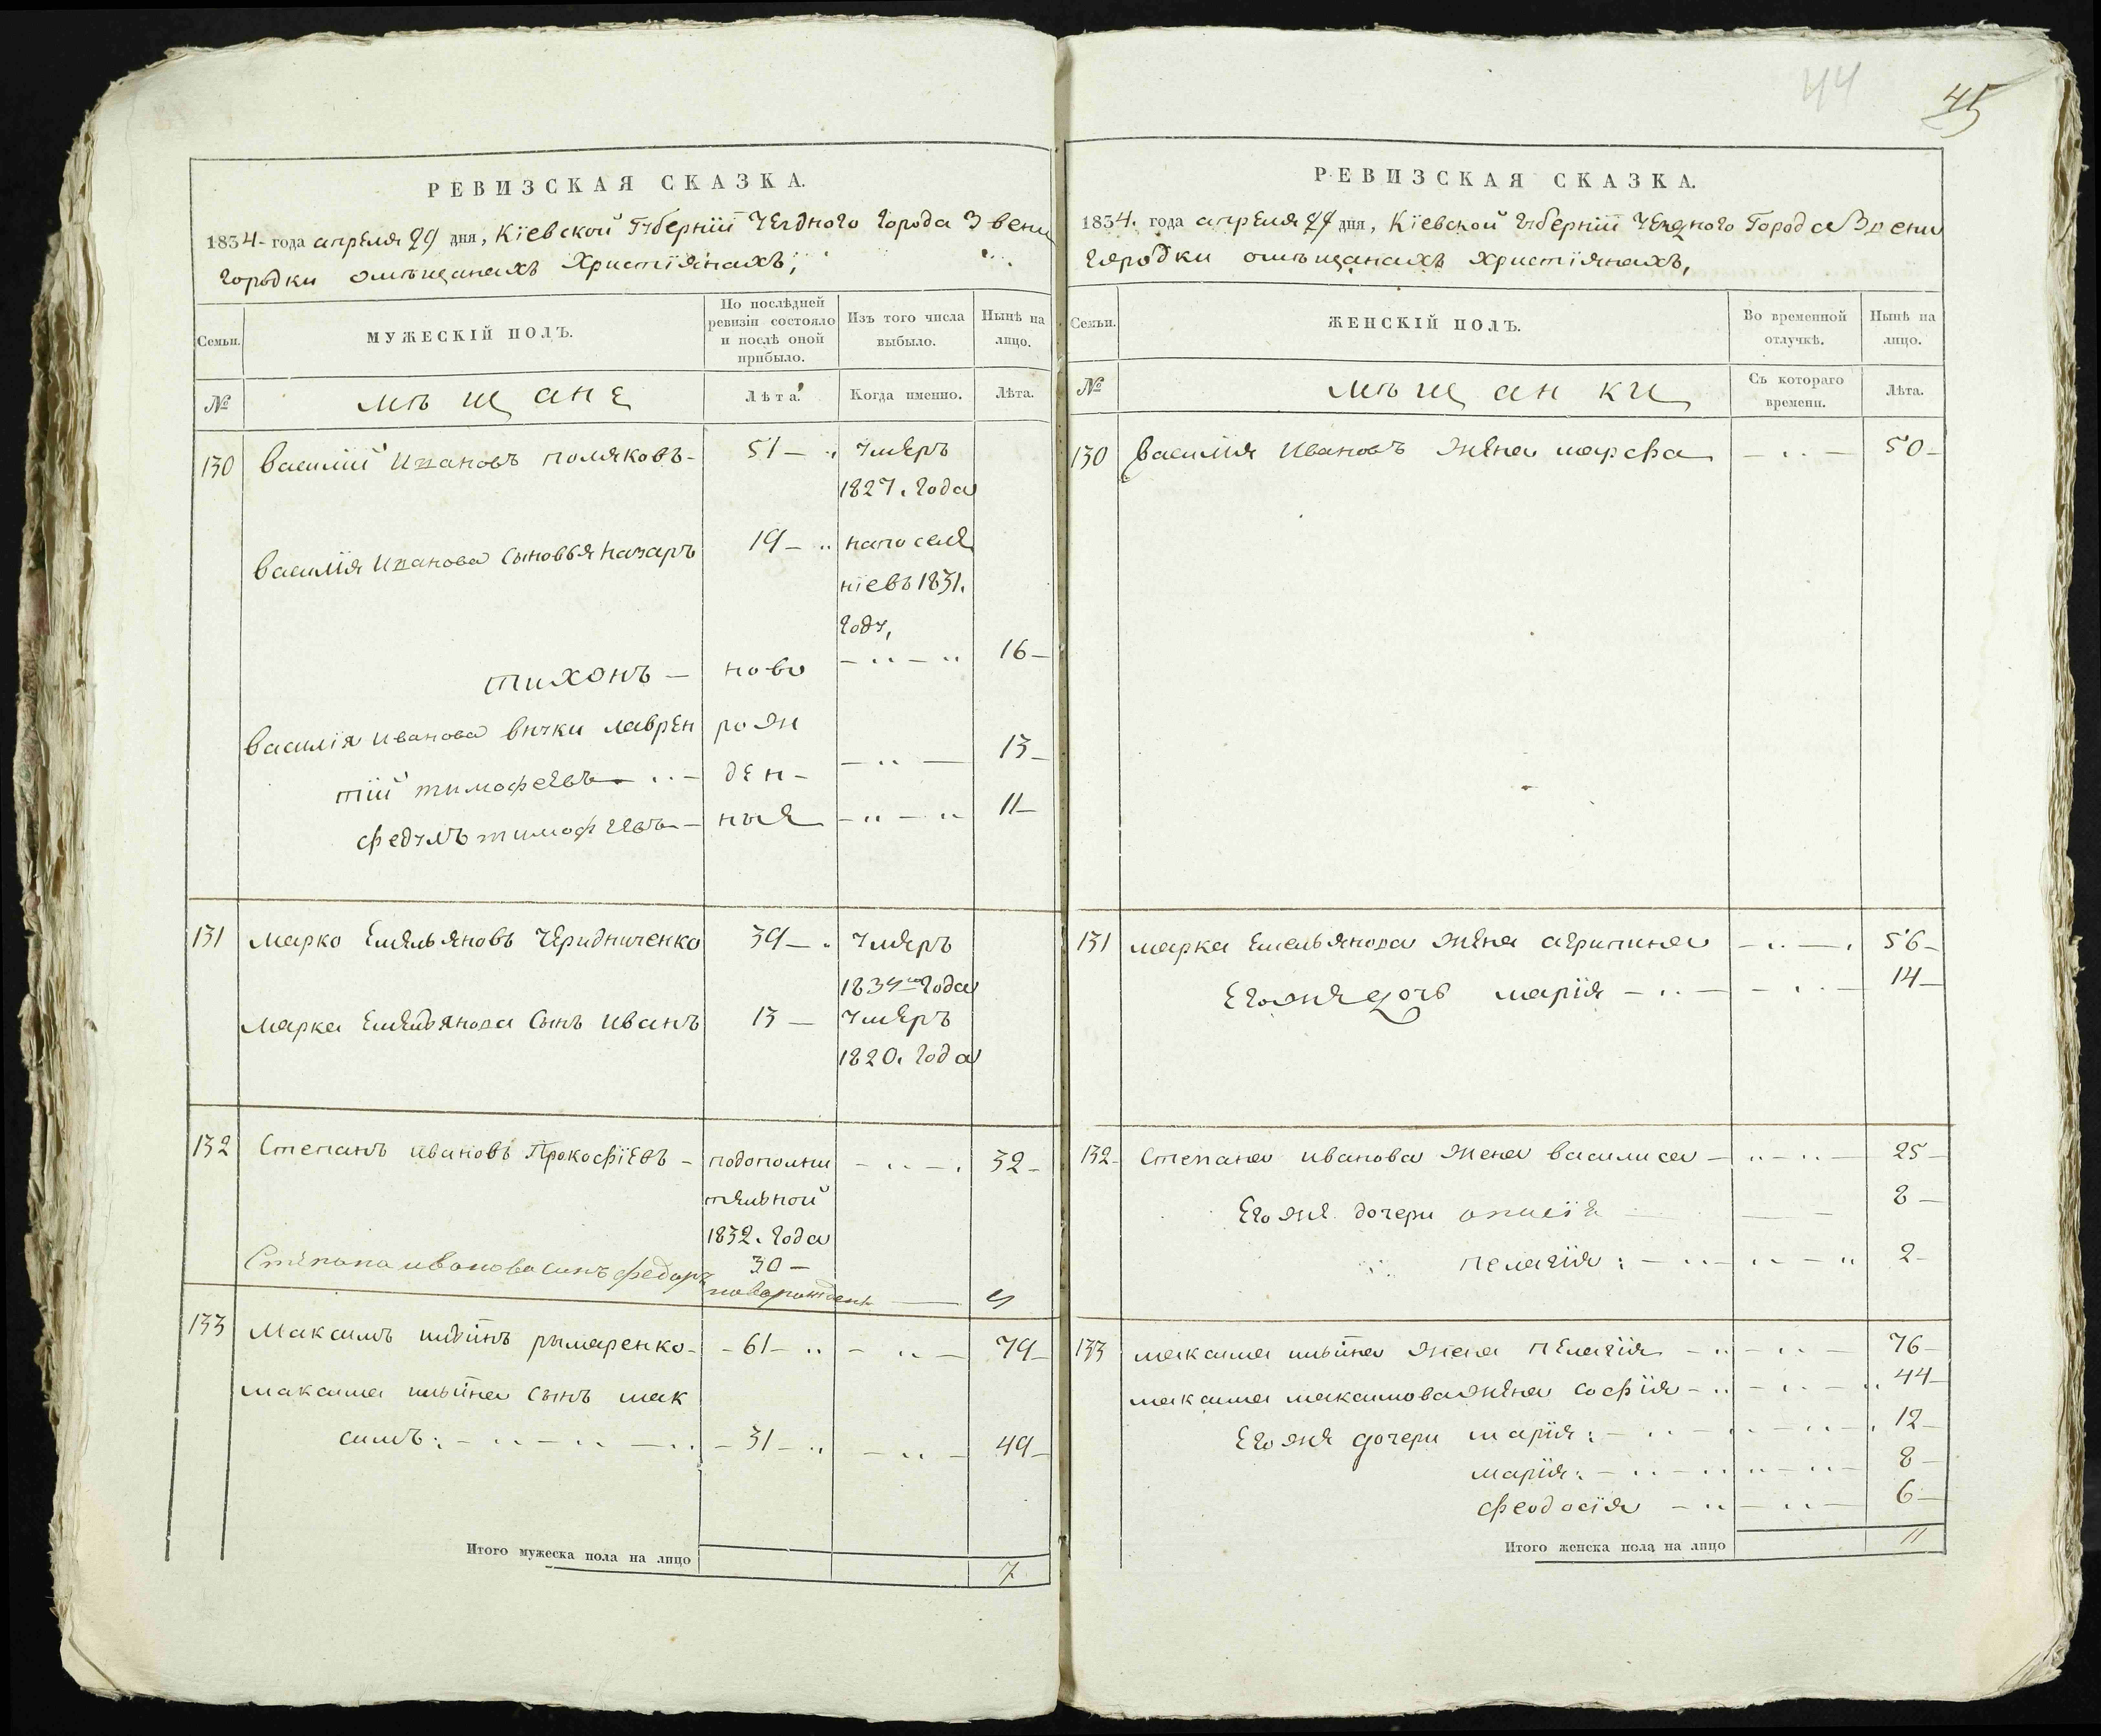 44
45
РЕВИЗСКАЯ СКАЗКА.
1834 года апреля 29 дня, Кіевской Губерніи Уезднаго города Звени
городки омѣщанахъ Христіянахъ,
Семьи.
МУЖЕСКІЙ ПОЛЪ.
По послѣдней ревизіи состояло и послѣ оной прибыло.
Изъ того числа выбыло.
Нынѣ на лицо.
№
мѣщане
Лѣта.
Когда именно.
Лѣта.
130 Василій Ивановъ поляковъ - 51 - умеръ
1827. года
Василія Иванова сыновья назаръ 19 - напоселе
ніевъ 1831.
году,
тихонъ - ново 16 -
Василія Иванова внуки лаврен рож 13 -
тій тимофеевъ - ден -
федулъ тимофеевъ - ные 11 -
131 Марко Емельяновъ Чериднченко 39 - умеръ
года
Марка Емельянова сынъ иванъ 13 - умеръ
1820. года
132 Степанъ ивановъ Прокофіевъ - подополни 32 -
тельной
1832. года
30 -
Степана иванова сынъ федоръ новорожден
133 Максимъ рымаренко - 61 - 79 -
максима сынъ мак
симъ: - 31 - 49 -
Итого мужеска пола на лицо 7
РЕВИЗСКАЯ СКАЗКА.
1834. года апреля дня, Кіевской губерніи Уезднаго Города Звени
городки омѣщанахъ христіянахъ,
Семьи.
ЖЕНСКІЙ ПОЛЪ.
Во временной отлучкѣ.
Нынѣ на лицо.
№
мѣщанки
Съ котораго времени.
Лѣта.
130 Василія Ивановъ жена марфа 50 -
131 марка Емельянова жена агрипина 56 -
Егожея дочь марія 14 -
132 - Степана иванова жена василиса - 25 -
Егоже дочери 8 -
пелагія: - 2 -
133 максима жена пелагія 76 -
максима максимова жена софія - 44 -
Егожея дочери марія: - 12 -
марія: - 8 -
феодосія - 6 -
Итого женска пола на лицо 11